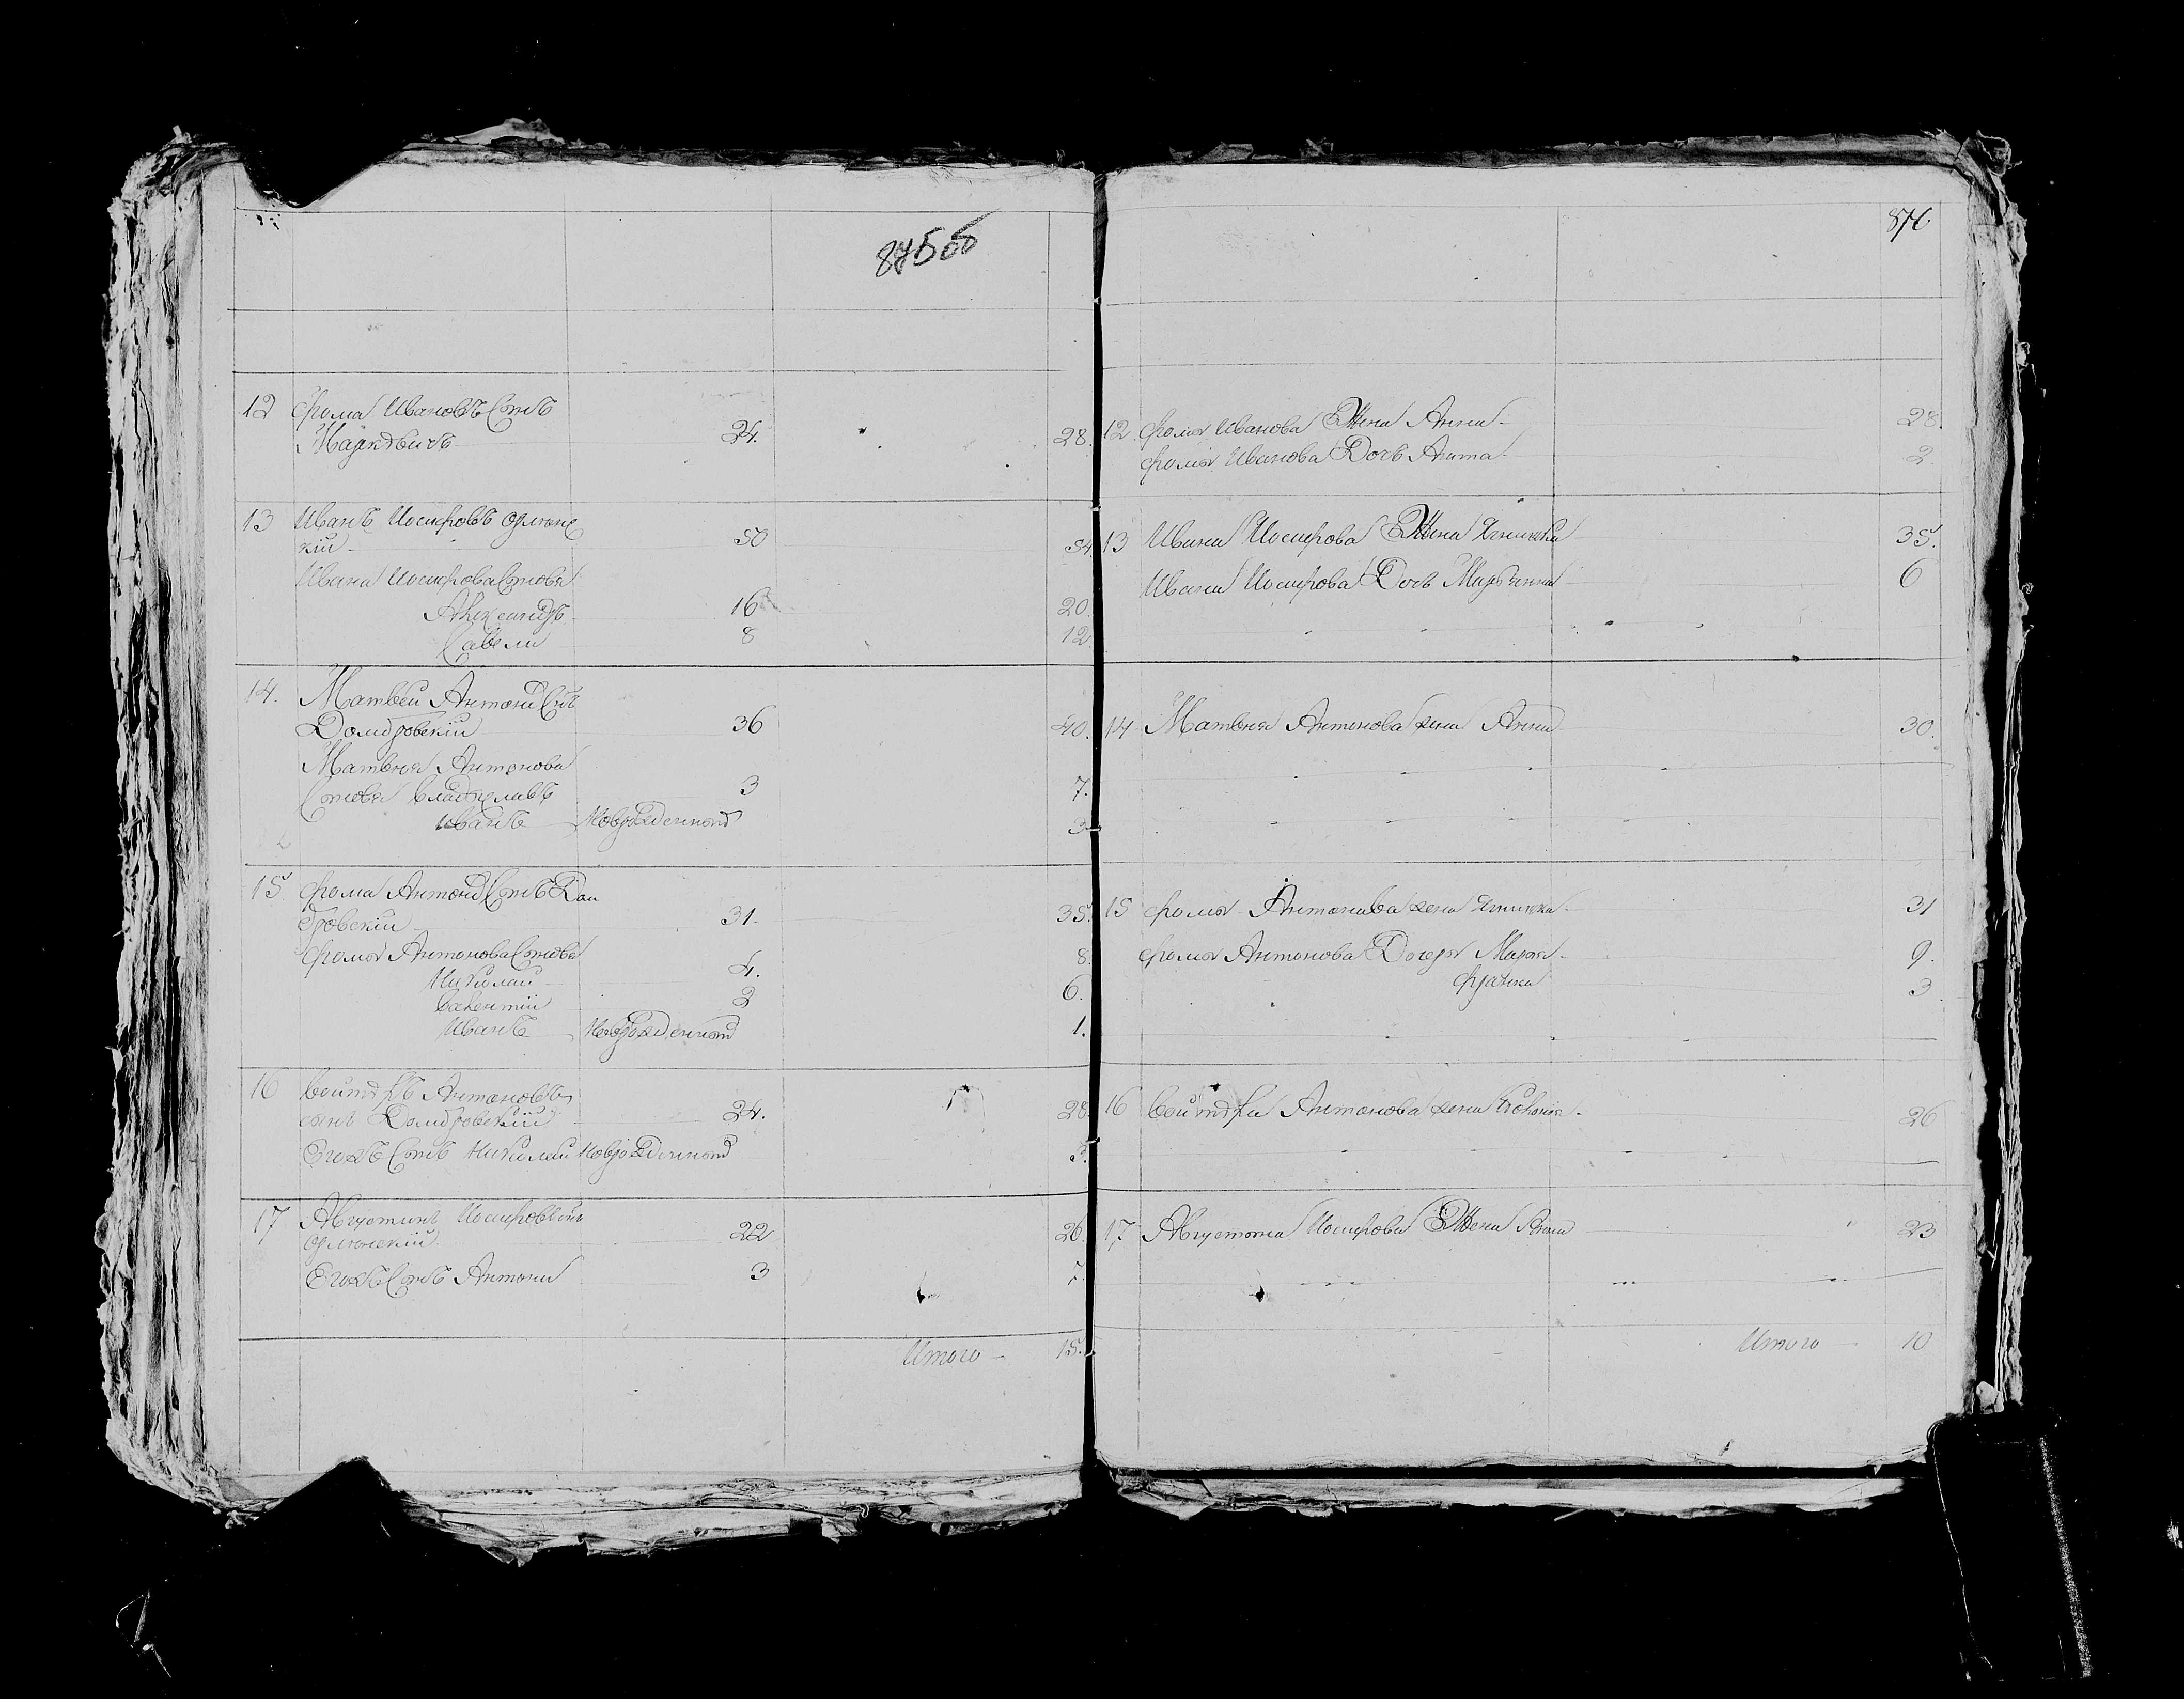 875об
12 Фома Ивановъ Сынъ
24. 28.
13 Иванъ Иосифовъ
кій 50 54.
Ивана Иосифова Сыновя
Александръ 16 20.
Савели 8 12
14. Матвеи Антони Снъ
Домбровскіи 36 40.
Матвея Антонова
Сыновя Владиславъ 3 7.
Иванъ Новрожденной 3
15. Фома Антоно Сынъ Дом
бровскіи 31. 35.
Фомы Антонова Сыновя 8.
Николаи 4.
Валентіи 2 6.
Иванъ Новорожденной 1.
16 Антоновъ
сынъ Домбровскіи 24. 28
Эгожъ Сынъ Николаи Новрожденной 3.
17 Августинъ Иосифовъ снъ
22 26.
Егожъ Сынъ Антони 3 7.
Итого 15.
876.
12. Фомы Иванова Жена Анна 28.
Фомы Иванова Дочь Агата 2
13 Ивана Иосифова Жена Ягнишка 35.
Ивана Иосифова Дочь Марьянна 6
14 Матвея Антонова жена Анна 30.
15 Фомы Антонова жена Ягнишка 31
Фомы Антонова Дочеря Марья 9.
3
16 Антонова жена 26
17 Августина Иосифова Жена 23
Итого 10